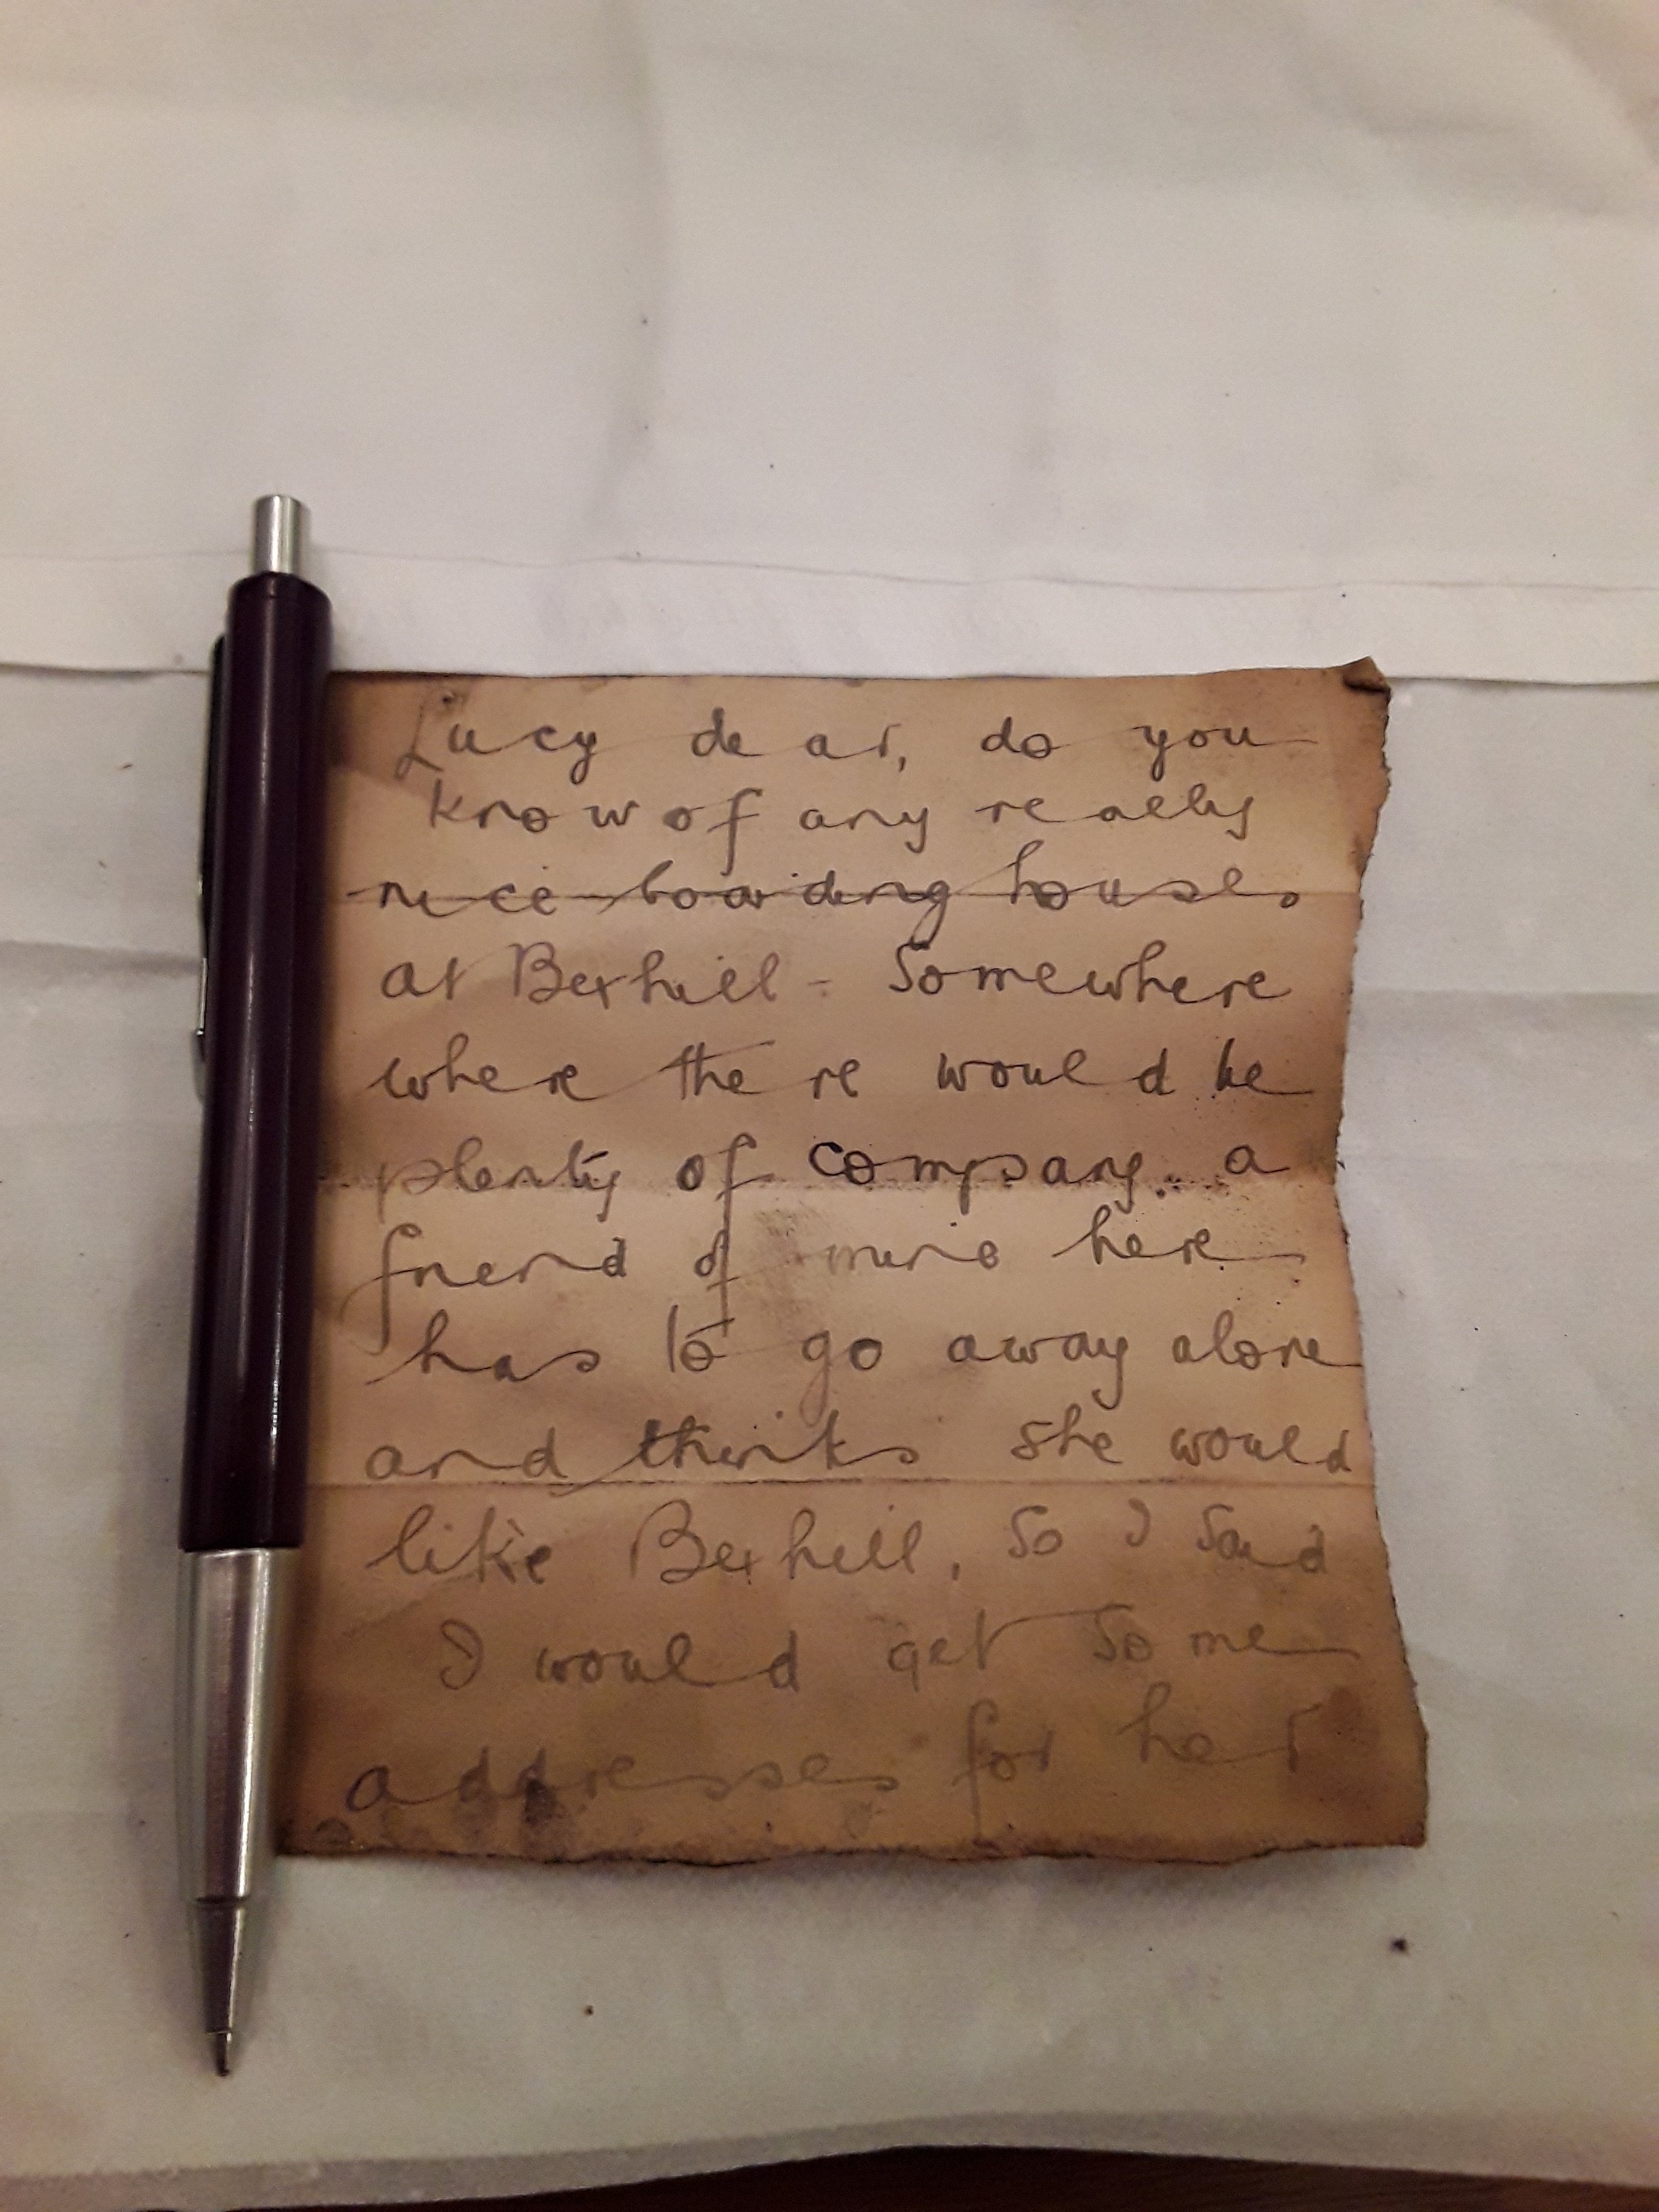 Lucy dear, do you
know of any really
nice boarding houses
at Bexhill - Somewhere
where there would be
plenty of company. a
friend of mine here
has to go away alone
and thinks she would
like Bexhill, so I said
I would get some
addresses for her